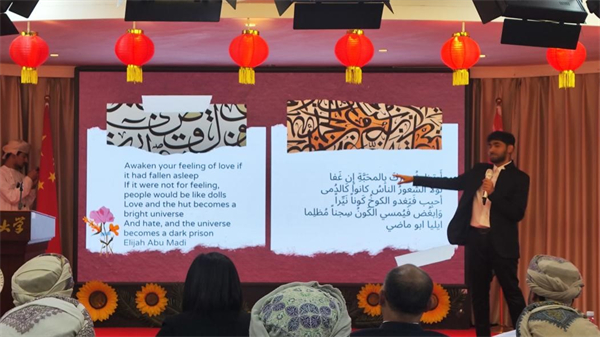 Awaken your feeling of love if
it had fallen asleep
If it were not for feeling,
people would be like dolls
Love and the hut becomes a
bright universe
And hate, and the universe
becomes a dark prison
Elijah Abu Madi
بالمحَبَّةِ إن غَفا
لَولا الشُعورُ الناسُ كانوا كَالدُمى
أَحبِب فَيَغدو الكوخُ كَوناً نَيِّراً
وَاِبغُض فَيُمسي الكَونُ سِجناً مُظلِما
ايليا ابو ماضي
大学